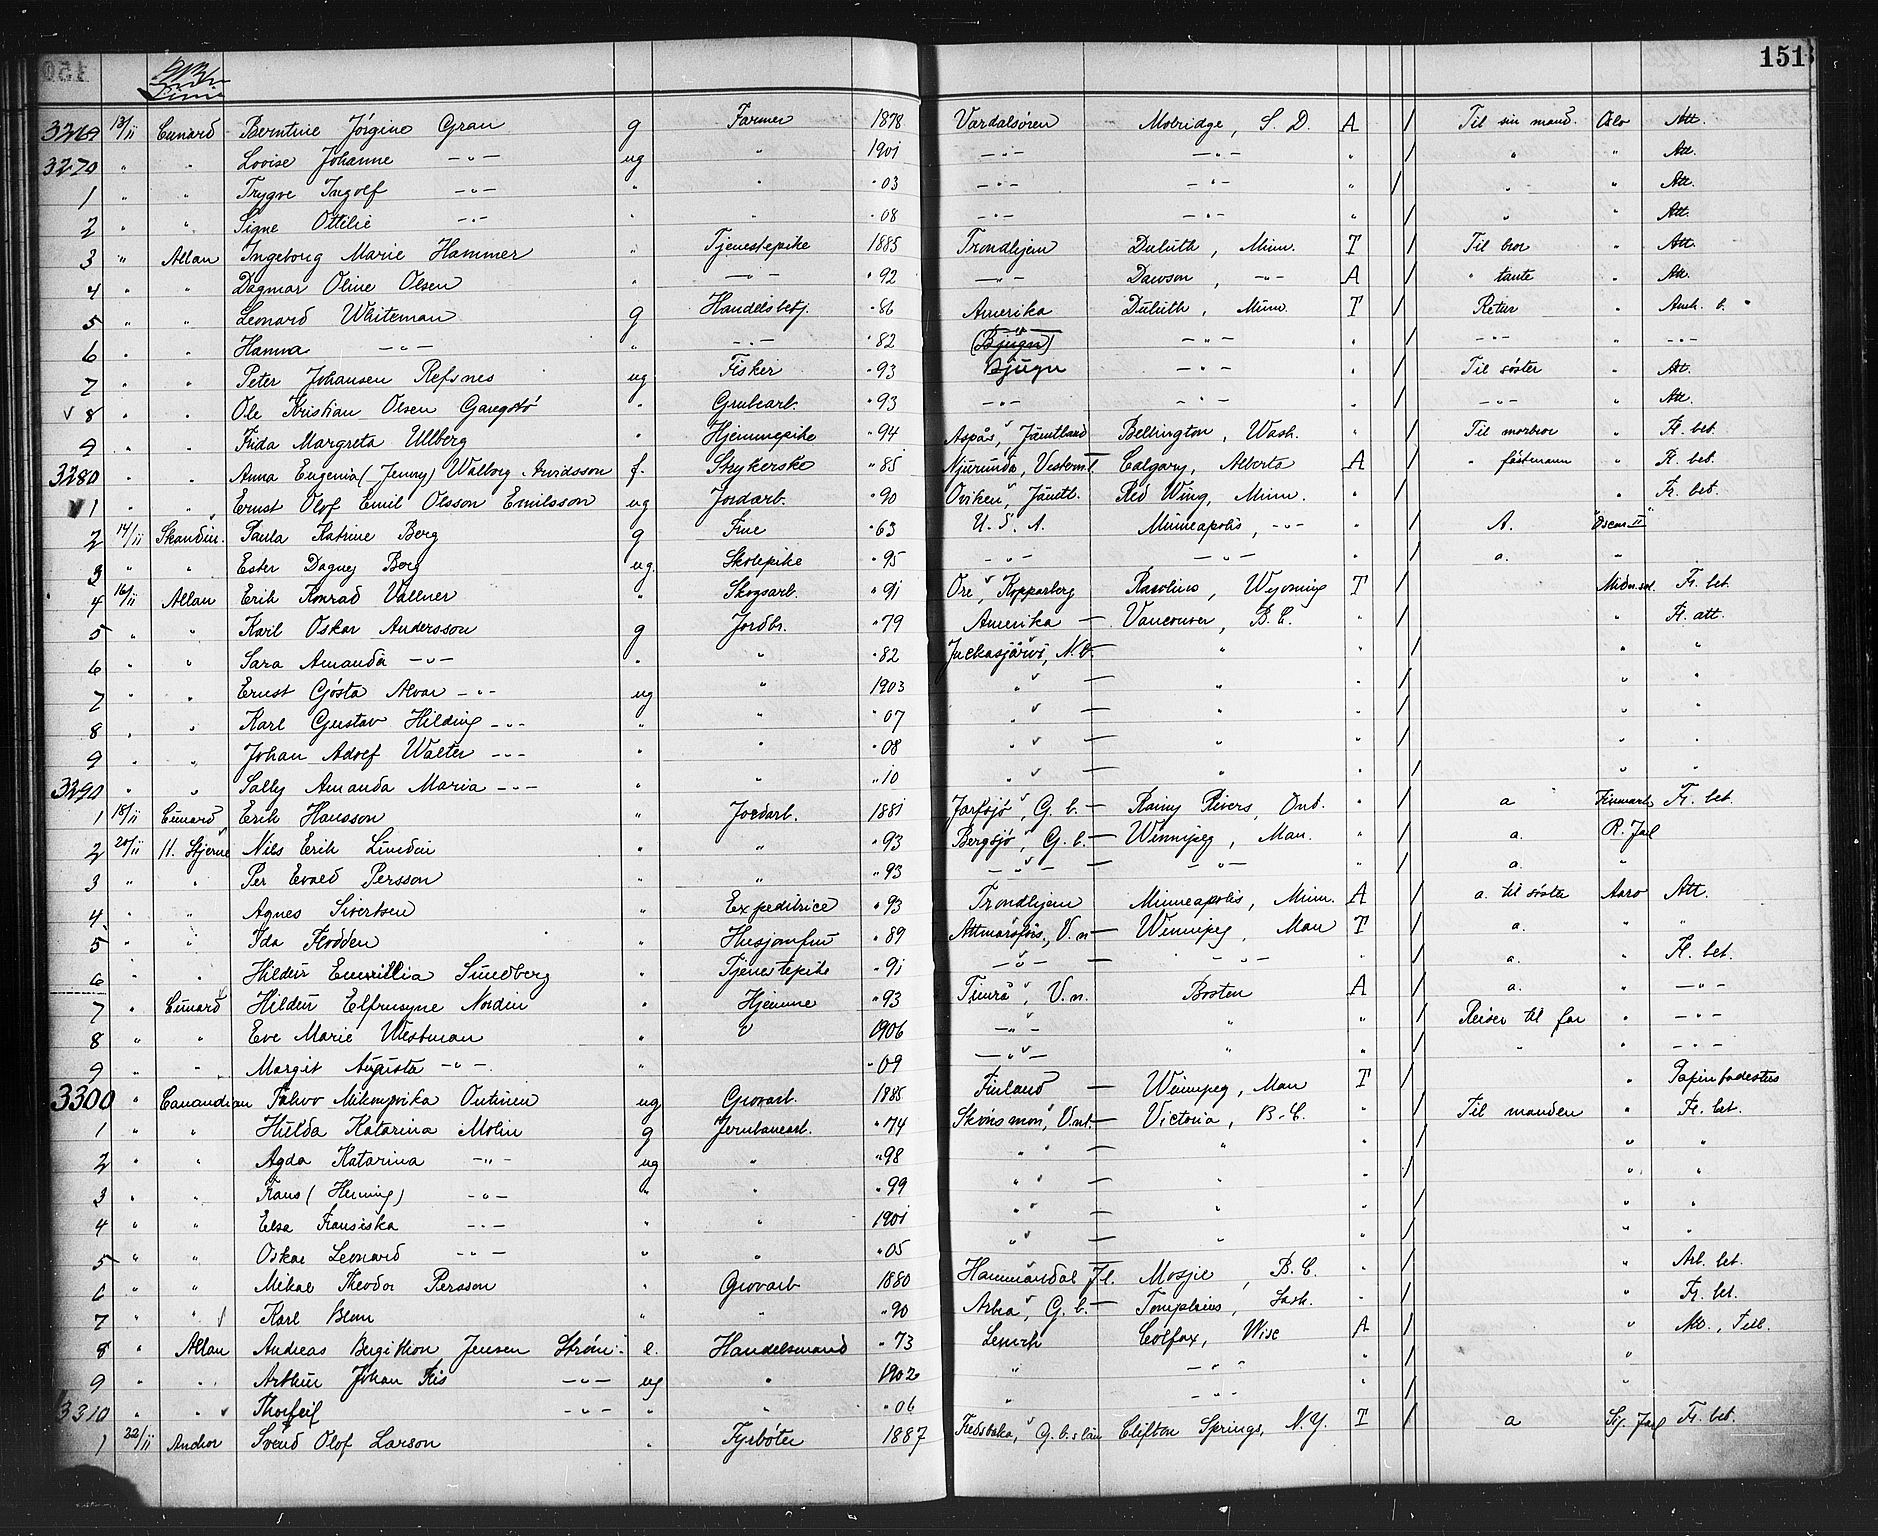 151
Linie
3269 13/11 Cunard Berntine Jörgine Gran g Farmer 1878 Værdalsören Mobridge, S. D. A / Til sin mand. Oslo Att.
3270 " " Lovise Johanne -"- ug " 1901 -"- -"- " / " " Att.
1 " " Trygve Ingolf -"- " " " 03 -"- -"- " / " " Att.
2 " " Signe Ottilie -"- " " " 08 -"- -"- " / " " Att.
3 " Allan Ingeborg Marie Hammer " Tjenestepike 1885 Trondhjem Duluth, Minn. T / Til bror " Att.
4 " " Dagmar Oline Olsen " -"- " 92 -"- Dawson, -"- A / " tante " Att.
5 " " Leonard Whiteman g Handelsbetj. " 86 Amerika Duluth, Minn. T / Retur " Amk. b. "
6 " " Hanna -"- " -"- " 82 (Bjugn) -"- " / -"- " -"-
7 " " Peter Johansen Refsnes ug Fisker " 93 Bjugn -"- " / Til söster " Att.
v 8 " " Ole Kristian Olsen " Grubearb. " 93 -"- -"- " / -"- " Att.
9 " " Frida Margreta Ullberg " Hjemmepike " 94 Aspås, Jämtland Bellington, Wash. " / Til morbror " Fr. bet.
3280 " " Anna Eugenia (Jenny) Walborg Arvidsson f. Strykerske " 85 Njurunda, Calgary, Alberta A / " fästmann " Fr. bet.
v 1 " " Ernst Olof Emil Olsson Emilsson ug Jordarb. " 90 Oviken, Jämtl. Red Wing, Minn. " / " Fr. bet.
2 14/11 Skandin. Paula Katrine Berg g Frue " 63 U. S. A. Minneapolis, -"- " / A. "Oscar II"
3 " " Ester Dagny Berg ug. Skolepike " 95 -"- -"- " / a. "
4 16/11 Allan Erik Konrad Vallner " Skogsarb. " 91 Ore, Kopparberg Wyoming T / Midn.sol Fr. bet.
5 " " Karl Oskar Andersson g Jordbr. " 79 Amerika — Vancouver, B. C. " / " Fr. att.
6 " " Sara Amanda -"- " " " 82 Juckasjärvi, N. b. — " " / " "
7 " " Ernst Gösta Alvar -"- ug " 1903 " — " " / " "
8 " " Karl Gustav Hilding -"- " " " 07 " — " " / " "
9 " " Johan Adolf Walter -"- " " " 08 " — " " / " "
3290 " " Sally Amanda Maria -"- " " " 10 " — " " / " "
1 18/11 Cunard Erik Hansson " Jordarb. 1881 Jarfsjö, G. b. — Rainy Rivers, Ont. " / a Finmark Fr. bet.
2 20/11 H. Stjerne Nils Erik Lindin " " " 93 Bergsjö, G. b. — Winnipeg, Man. " / a. R. Jarl
3 " " Per Evald Persson " " " 93 -"- — -"- " / a. "
4 " " Agnes Sivertsen " Expeditrice " 93 Trondhjem Minneapolis, Minn. A / a. til söster Aaro Att.
5 " " Ida Flodden " Husjomfru " 89 Attmarsfors, V. n — Winnipeg, Man T / a. " "
6 " " Hildur Emillia Sundberg " Tjenestepike " 91 -"- — -"- " / a. " Fr. bet.
7 " Cunard Hildur Elfrusyne Nordin " Hjemme " 93 Timrå, V. n. Boston A / a. " -"-
8 " " Eve Marie Westman " " 1906 -"- " " / Reiser til far " -"-
9 " " Margit Augusta -"- " " 09 -"- " " / " " -"-
3300 " Canandian Outinen ug Grovarb. 1885 Finland — Winnipeg, Man T / "
1 " " Hulda Katarina Molin g Jernbanearb. " 74 Skönsmon, V.nl. — Victoria, B. C. " / Til manden " Fr. bet.
2 " " Agda Katarina -"- ug " " 98 " — " / " "
3 " " Frans (Henning) -"- " " " 99 " — " " / " "
4 " " Elsa Fransiska -"- " " 1901 " — " " / " "
5 " " Oskar Leonard -"- " " " 05 " — " " / " "
6 " " Mikal Theodor Persson " Grovarb 1880 Hammerdal Jl. Mosjie, B. C. " / " Arb. bet.
7 " " Karl Blom " " " 90 Arbrå, G. b. — Tomplains, Sask. " / " Fr. bet.
8 " Allan Andreas Bergitton Jensen Ström e. Handelsmand " 73 Lenvik Colfax, Wisc A / "
9 " " Arthur Johan Friis -"- ug " 1902 " -"- " / "
3310 " " Thorleif -"- " " " 06 " -"- " / "
1 22/11 Anchor Svend Olof Larson " Fyrböter 1887 G. b.s län Clifton Springs, N. Y. T / a Sig. Jarl Fr. bet.